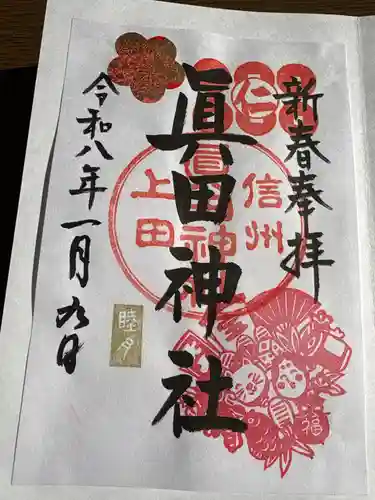 新春奉拝
眞田神社
令和八年一月九日
信州
上田
眞田神社
仁
睦月
福